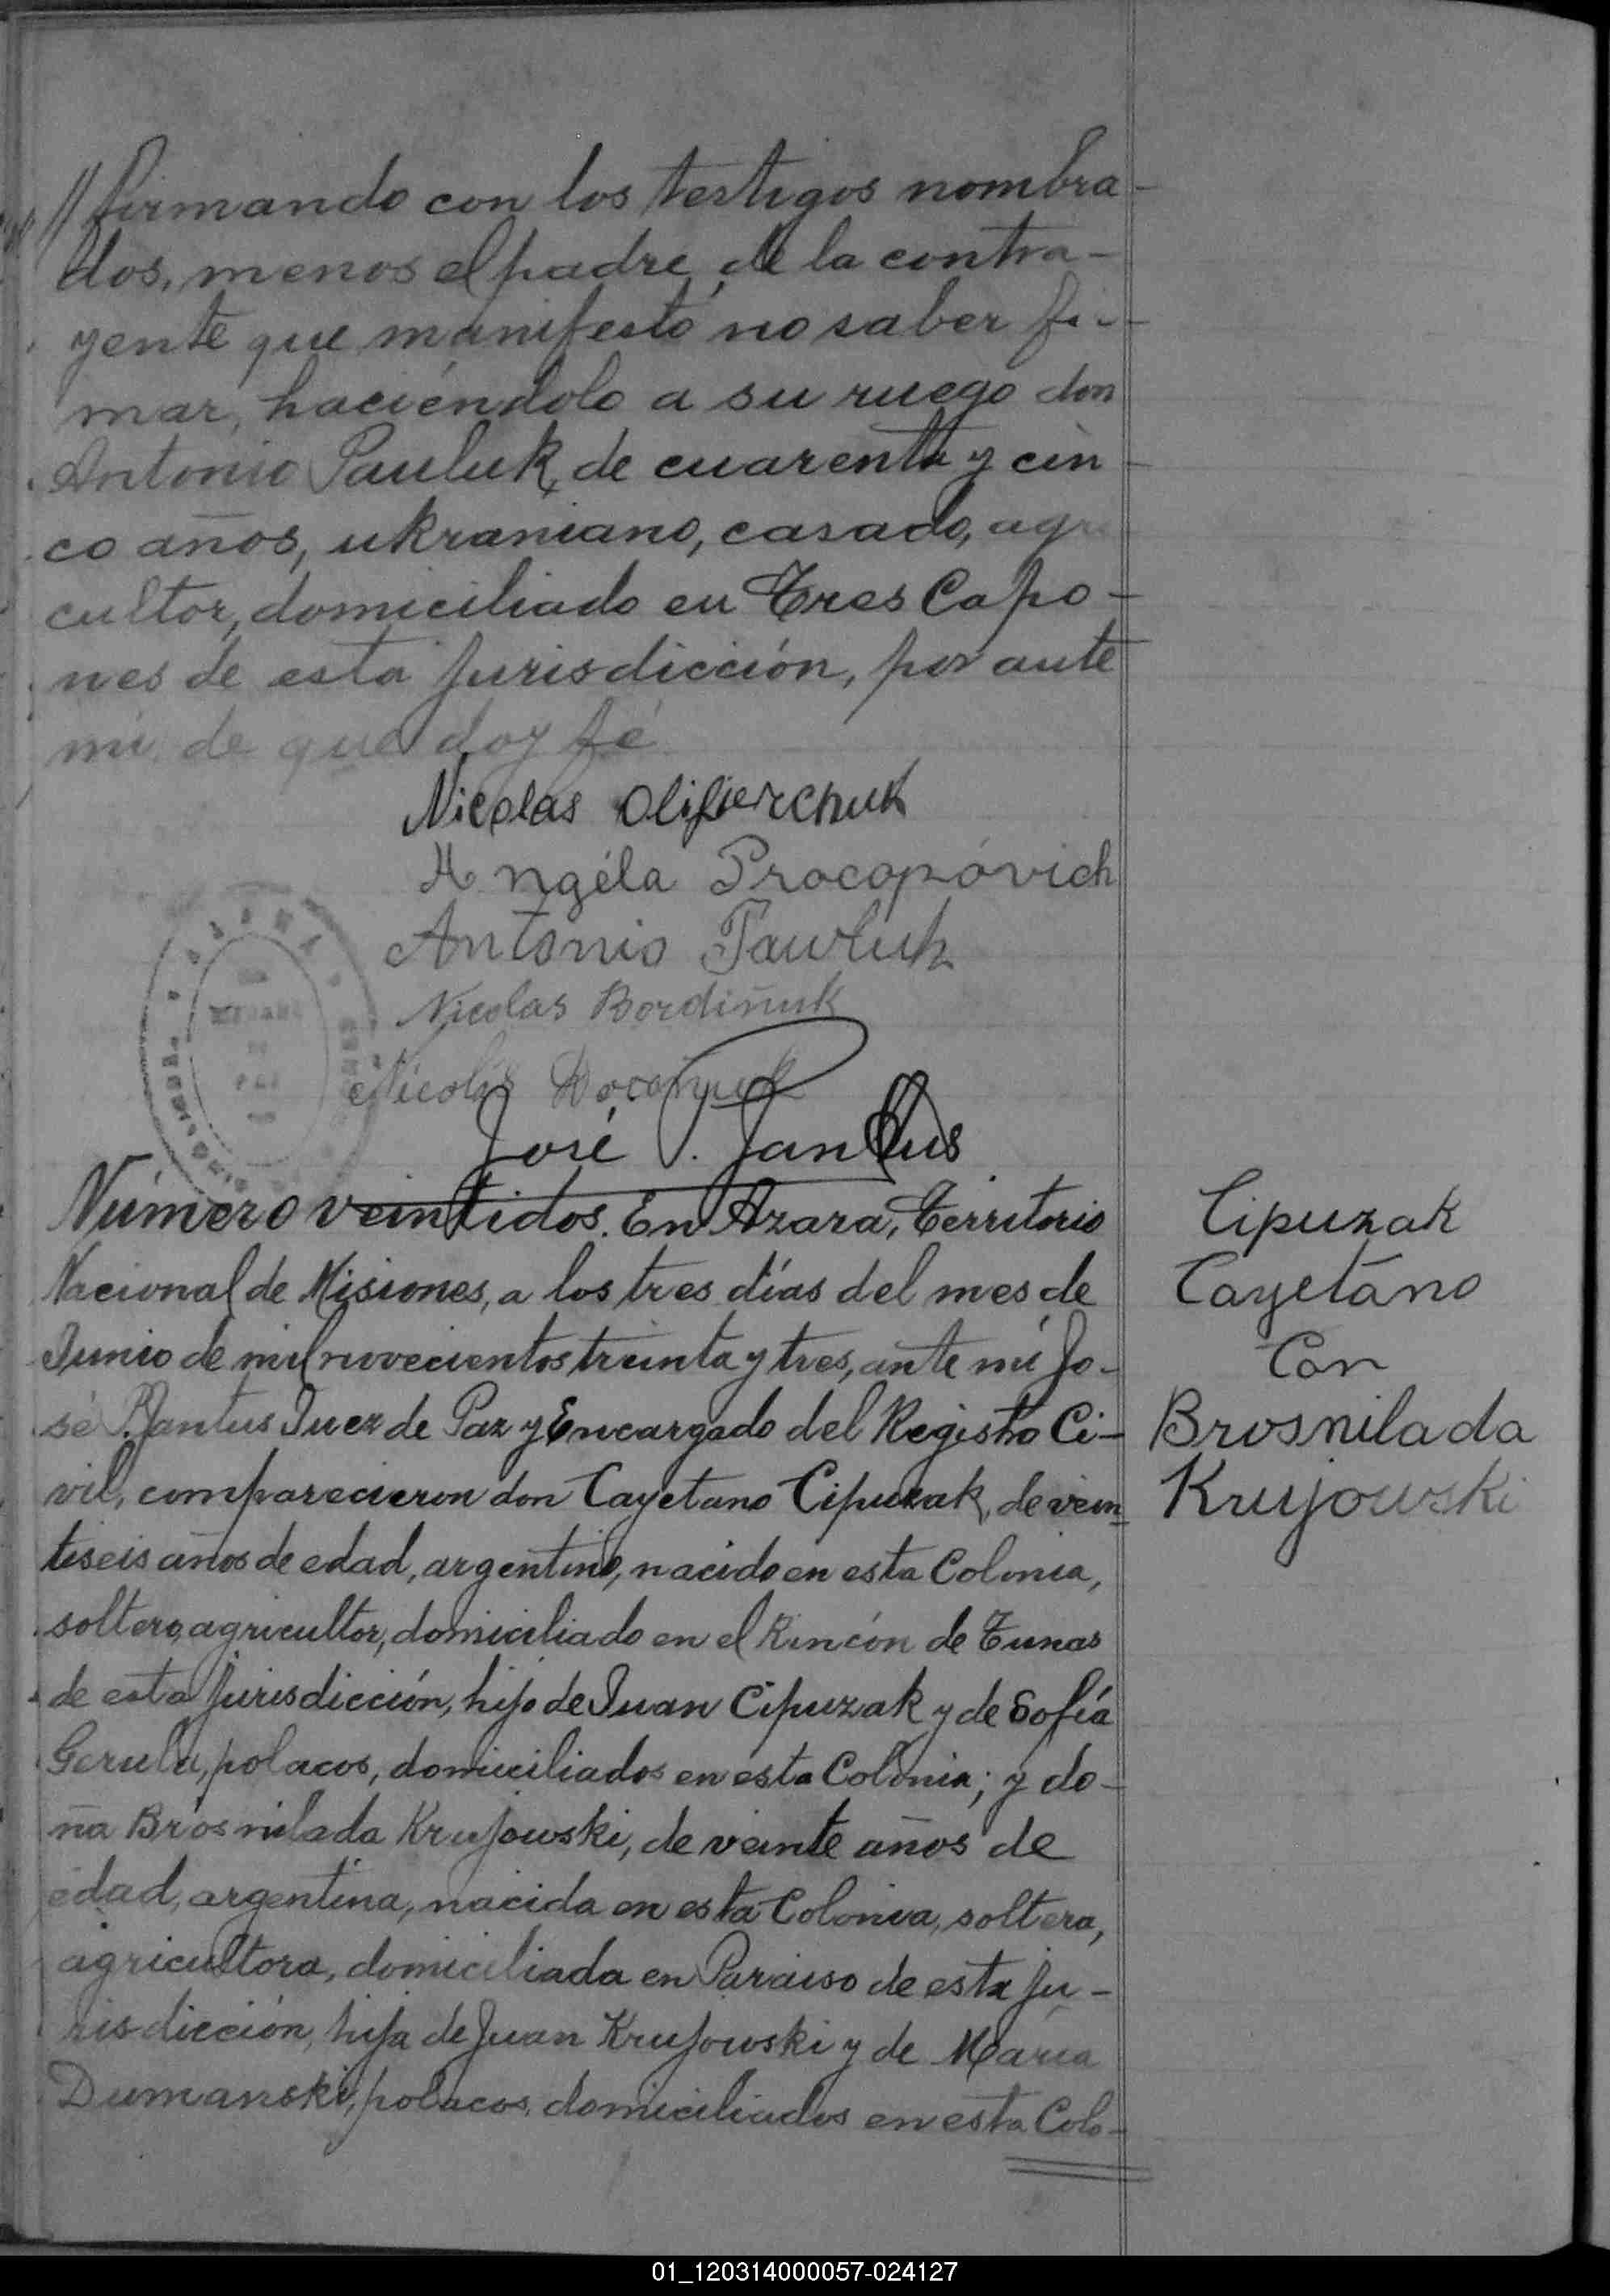 // firmando con los testigos nombra-
dos, menos el padre de la contra-
yente que manifestó no saber fir-
mar, haciéndolo a su ruego don
Antonio Pauluk, de cuarenta y cin-
co años, ukraniano, casado, agri
cultor, domiciliado en Tres Capo-
nes de esta jurisdicción, por ante
mi, de que doy fé
Nicolas Oliferchuk
Angéla Procopóvich
Antonio Pawluk
Nicolas Bordiñuk
Nicolás
José P. Jantus
Número veintidos. En Azara, Territorio
Nacional de Misiones, a los tres días del mes de
Junio de mil novecientos treinta y tres, ante mí Jo-
sé P. Jantus Juez de Paz y Encargado del Registro Ci-
vil, comparecieron don Cayetano Cipuzak, de vein
tiseis años de edad, argentino, nacido en esta Colonia,
soltero, agricultor, domiciliado en el Rincón de Tunas
de esta jurisdicción, hijo de Juan Cipuzak y de Sofía
Gerula, polacos, domiciliados en esta Colonia; y do-
ña Brosnilada Krujowski, de veinte años de
edad, argentina, nacida en esta Colonia, soltera,
agricultora, domiciliada en Paraiso de esta ju-
risdicción, hija de Juan Krujowski y de María
Dumanski, polacos, domiciliados en esta Colo-
Cipuzak
Cayetano
Con
Brosnilada
Krujowski
01_120314000057-024127